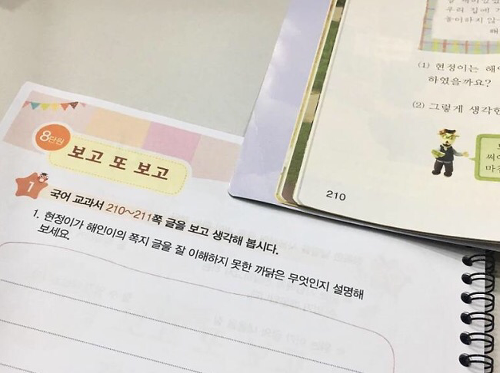 8단원
보고 또 보고
1 국어 교과서 210~211쪽 글을 보고 생각해 봅시다.
1. 현정이가 해인이의 쪽지 글을 잘 이해하지 못한 까닭은 무엇인지 설명해
보세요.
우리 집에
놀이하지 않
해
(1) 현정이는 해
하였을까요?
(2) 그렇게 생각한
써
마
210